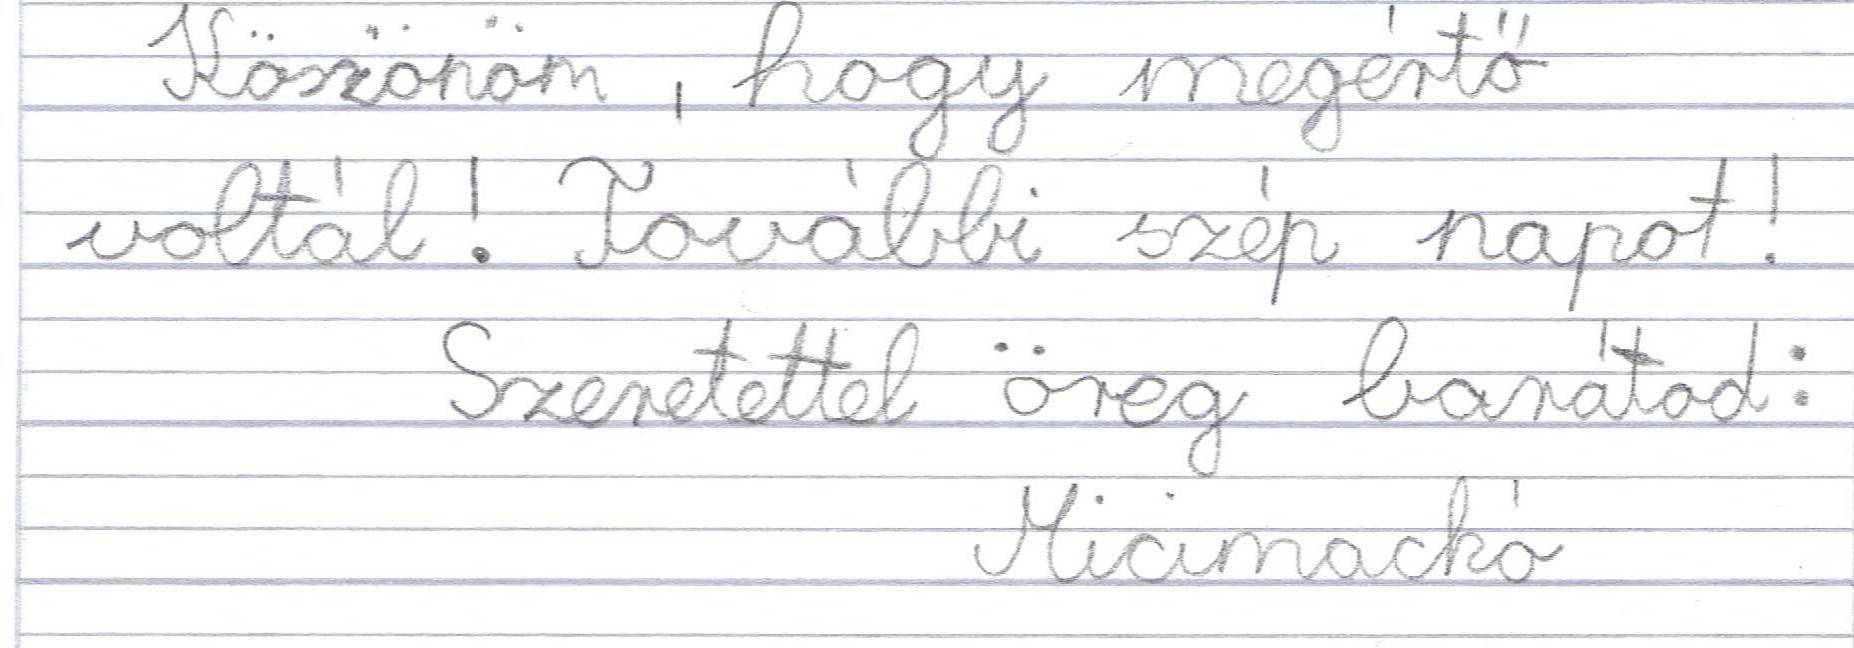 Köszönöm, hogy megértő
voltál! További szép napot!
Szeretettel öreg barátod:
Micimackó